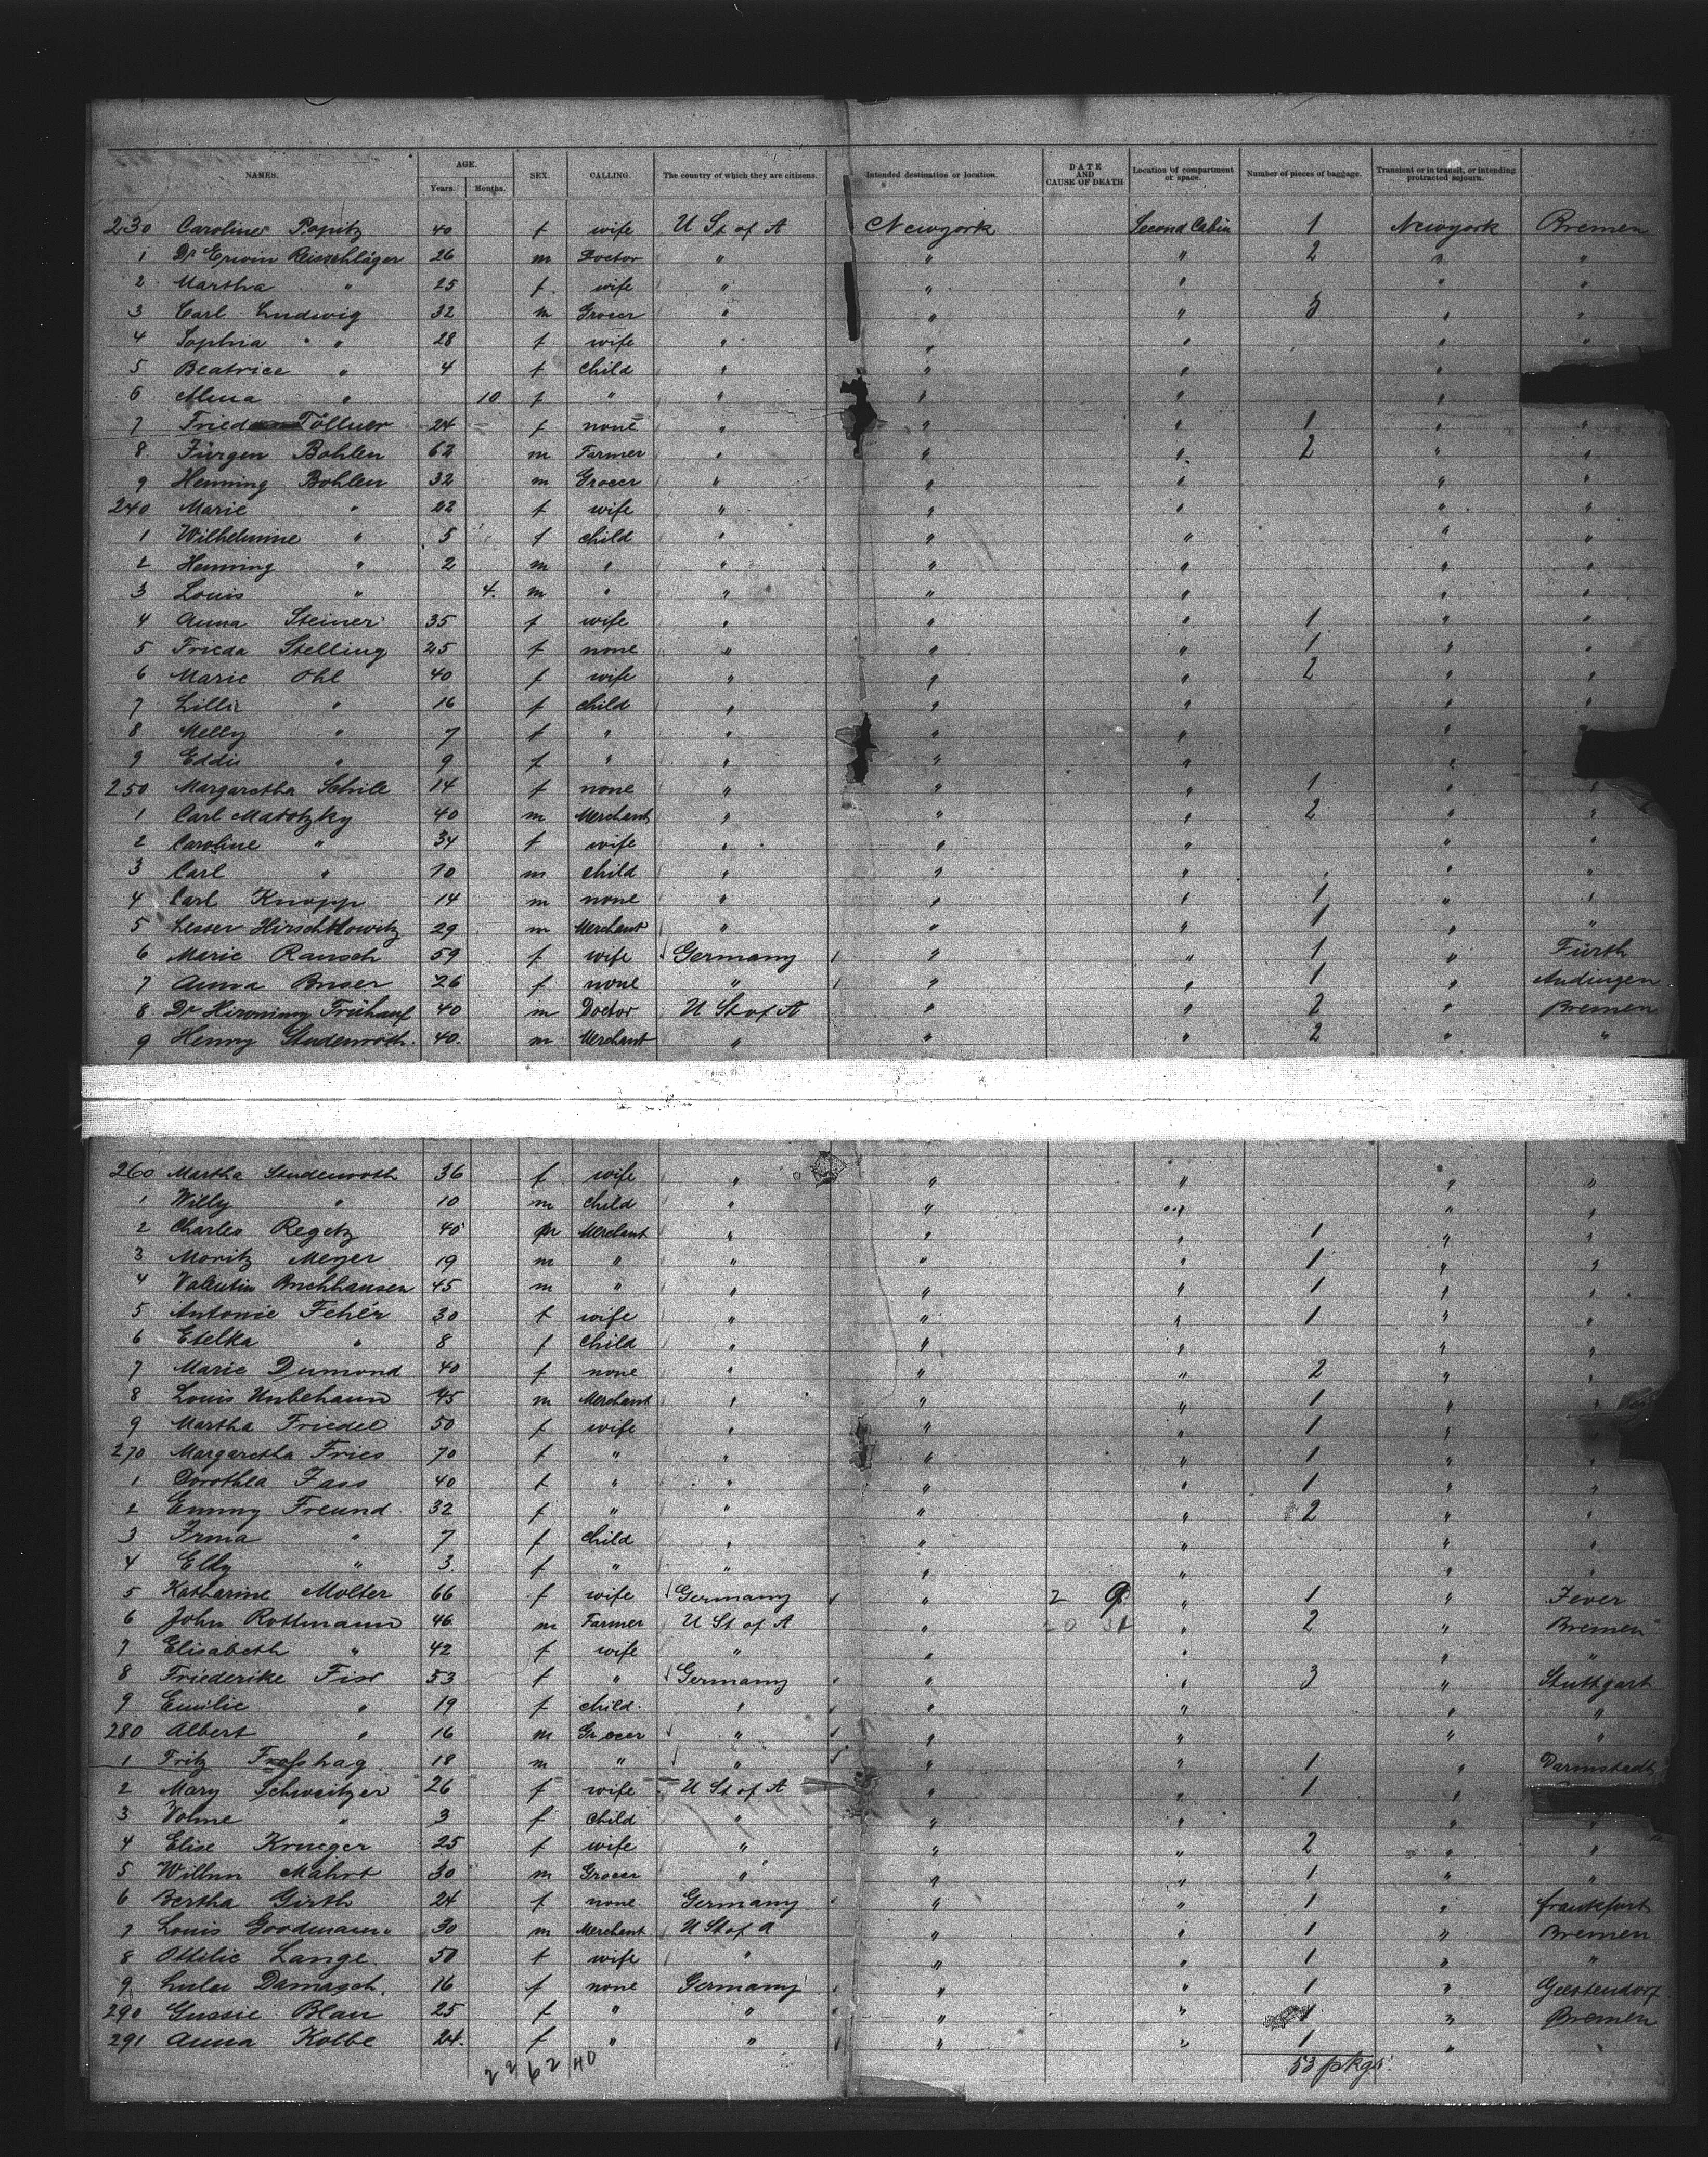 NAMES. AGE. Years. Months. SEX. CALLING. The country of which they are citizens. Intended destination or location. DATE AND CAUSE OF DEATH Location of compartment or space. Number of pieces of baggage. Transient or in transit, or intending protracted sojourn.
230 Caroline Popitz 40 f wife U St of A Newyork Second Cabin 1 Newyork Bremen
1 Dr Erwin Reisschläger 26 m Doctor " " " 2 " "
2 Martha " 25 f. wife " " " " "
3 Carl Ludwig 32 m Grocer " " " 5 " "
4 Sophia " 28 f wife " " " " "
5 Beatrice " 4 f Child " " " "
6 Alma " 10 f " " " " "
7 Fried Töllner 24 f none " " " 1 " "
8 Jürgen Bohlen 62 m Farmer " " " 2 " "
9 Henning Bohlen 32 m Grocer " " " " "
240 Marie " 22 f wife " " " " "
1 Wilhelmine " 5 f child " " " " "
2 Henning " 2 m " " " " " "
3 Louis " 4. m " " " " " "
4 Anna Steiner 35 f wife " " " 1 " "
5 Frieda Stelling 25 f none " " " 1 " "
6 Marie Ohl 40 f wife " " " 2 " "
7 Lilli " 16 f child " " " " "
8 Melly " 7 f " " " " "
9 Eddie " 9 f " " " " "
250 Margaretha Schile 14 f none " " " 1 " "
1 Carl Matotzky 40 m Merchant " " " 2 " "
2 Caroline " 34 f wife " " " " "
3 Carl " 10 m child " " " " "
4 Carl Knopp 14 m none " " " 1 " "
5 Lesser Hirschkowitz 29 m Merchant " " " 1 " "
6 Marie Rausch 59 f wife Germany " " 1 " Fürth
7 Anna Buser 26 f none " " " 1 " Andingen
8 Dr Hironimy Frühauf 40 m Doctor U St of A " " 2 " Bremen
9 Henry Studenroth. 40. m Merchant " " " 2 " "
260 Martha Studenroth 36 f wife " " " " "
1 Willy " 10 m child " " " " "
2 Charles Regetz 40 m Merchant " " " 1 " "
3 Moritz Meyer 19 m " " " " 1 " "
4 Valentin Buchhausen 45 m " " " " 1 " "
5 Antonie Fehér 30 f wife " " " 1 " "
6 Etelka " 8 f child " " " " "
7 Marie Dumond 40 f none " " " 2 " "
8 Louis Unbehaun 45 m Merchant " " " 1 " "
9 Martha Friedel 50 f wife " " " 1 " "
270 Margaretha Fries 70 f " " " " 1 " "
1 Dorothea Fass 40 f " " " " 1 " "
2 Emmy Freund 32 f " " " " 2 " "
3 Irma " 7 f child " " " " "
4 Elly " 3. f " " " " " "
5 Katharine Molter 66 f wife Germany " 2 9 " 1 " Jever
6 John Rottmann 46 m Farmer U St of A " " 2 " Bremen
7 Elisabeth " 42 f wife " " " " "
8 Friederike Fisr 53 f " Germany " " 3 " Stuttgart
9 Emilie " 19 f child. " " " " "
280 Albert " 16 m Grocer " " " " "
1 Fritz Frosshag 18 m " " " " 1 " Darmstadt
2 Mary Schweitzer 26 f wife U St of A " " 1 "
3 Volme " 3 f child " " " " "
4 Elise Krueger 25 f wife " " " 2 " "
5 Willm Mahrt 30 m Grocer " " " 1 " "
6 Bertha Girth 24 f none Germany " " 1 " frankfurt
7 Louis Goodmann 30 m Merchant U St of A " " 1 " Bremen
8 Ottilie Lange 50 f wife " " " 1 " "
9 Lulu Damasch, 16 f none Germany " " 1 " Geestendorf
290 Gussie Blau 25 f " " " " 1 " Bremen
291 Anna Kolbe 24. f " " " " 1 " "
22 62 40 53 pkgs.